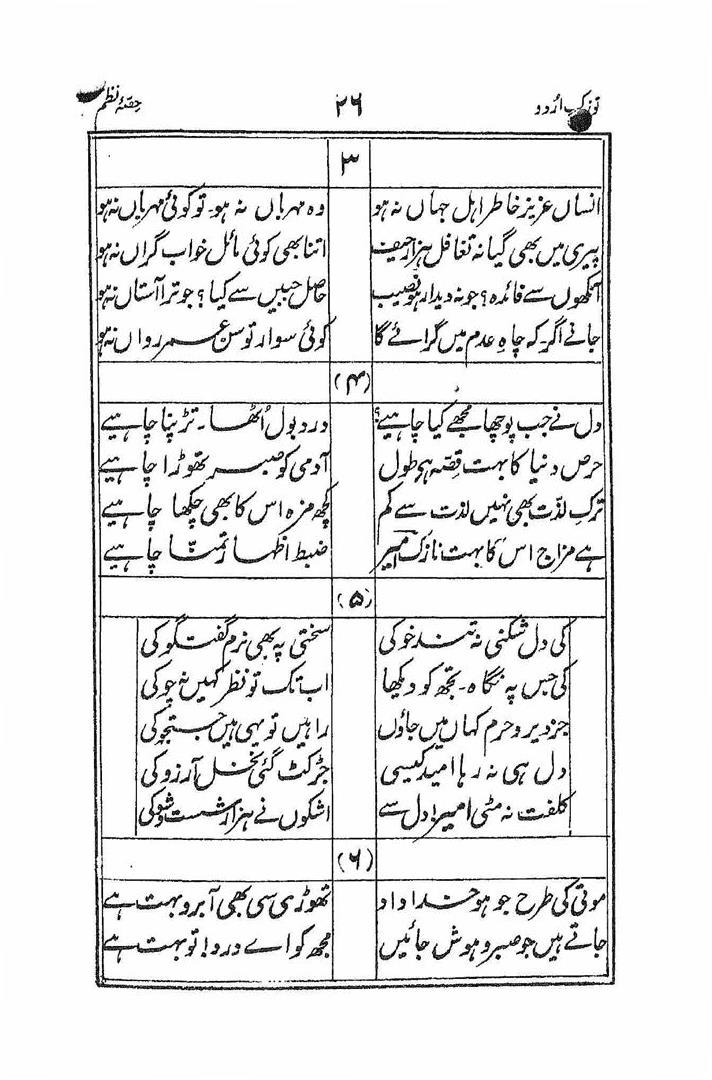 تزک اُردو ۲۶ حصّۂ نظم
۳
انساں عزیز خاطر اہل جہاں نہ ہو وہ مہرباں نہ ہو۔ تو کوئی مہرباں نہ ہو
پیری میں بھی گیا نہ تغافل ہزار حیف اتنا بھی کوئی مائل خواب گراں نہ ہو
آنکھوں سے فائدہ؟ جو نہ دیدار ہو نصیب حاصل جبیں سے کیا؟ جو ترا آستاں نہ ہو
جانے اگر۔ کہ چاہِ عدم میں گرائے گا کوئی سوار توسن عمر رواں نہ ہو
(۴)
دل نے جب پوچھا مجھے کیا چاہیے؟ درد بول اُٹھا۔ تڑپنا چاہیے
حرص دنیا کا بہت قصّہ ہی طول آدمی کو صبر تھوڑا چاہیے
ترکِ لذّت بھی نہیں لذت سے کم کچھ مزہ اس کا بھی چکھا چاہیے
ہے مزاج اس کا بہت نازک امیر ضبط اظہار تمنّا چاہیے
(۵)
کی دل شکنی نہ تند خو کی سختی پہ بھی نرم گفتگو کی
کی جس پہ نگاہ۔ تجھ کو دیکھا اب تک تو نظر کہیں نہ چوکی
جز دیر و حرم کہاں میں جاؤں راہیں تو یہی ہیں جستجو کی
دل ہی نہ رہا امید کیسی جڑ کٹ گئی نخل آرزو کی
کلفت نہ مٹی امیر! دل سے اشکوں نے ہزار شست و شو کی
(۶)
موتی کی طرح جو ہو خدا داد تھوڑی سی بھی آبرو بہت ہے
جاتے ہیں جو صبر و ہوش جائیں مجھ کو اے درد! تو بہت ہے